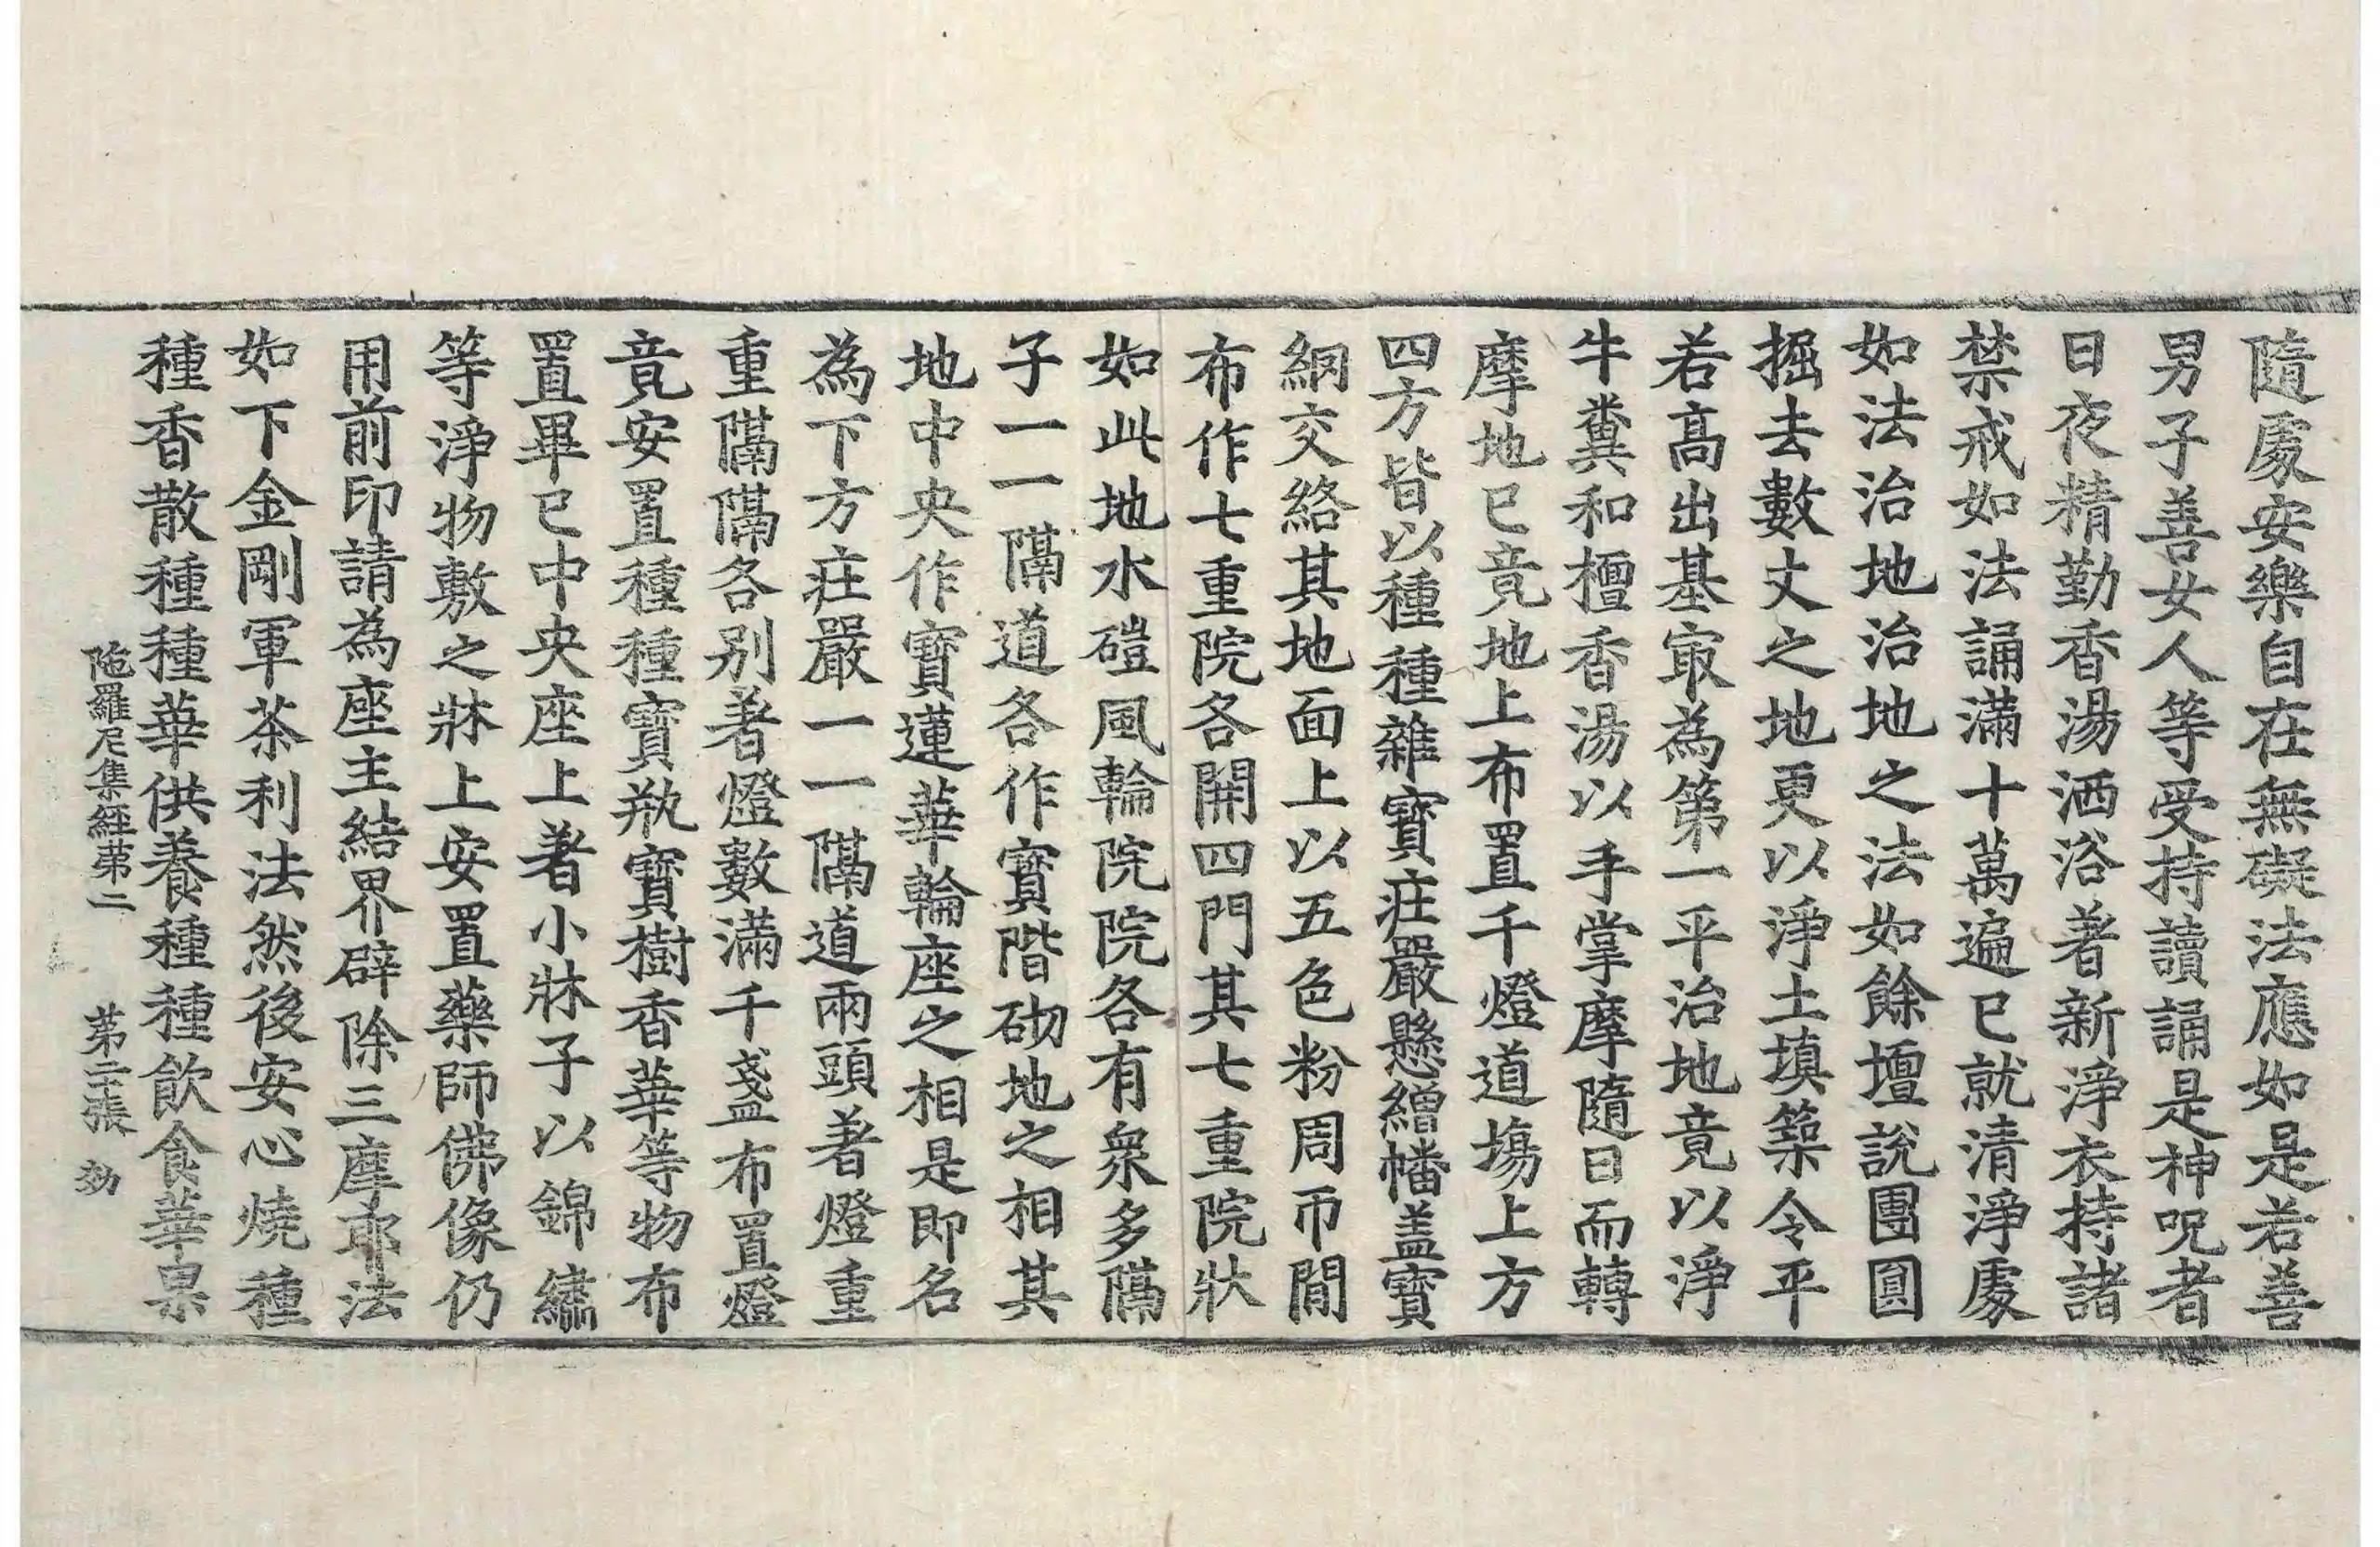 隨處安樂自在無礙法應如是若善
男子善女人等受持讀誦是神呪者
日夜精勤香湯洒浴著新淨衣持諸
禁戒如法誦滿十萬遍已就清淨處
如法治地治地之法如餘壇說團圓
掘去數丈之地更以淨土填築令平
若高出基㝡為第一平治地竟以淨
牛糞和檀香湯以手掌摩隨日而轉
摩地已竟地上布置千燈道場上方
四方皆以種種雜寶莊嚴懸繒幡盖寶
網交絡其地面上以五色粉周帀間
布作七重院各開四門其七重院狀
如此地水磑風輪院院各有衆多隔
子一一隔道各作寶階砌地之相其
地中央作寶蓮華輪座之相是即名
為下方莊嚴一一隔道兩頭著燈重
重隔隔各別著燈數滿千盞布置燈
竟安置種種寶瓶寶樹香華等物布
置畢已中央座上著小牀子以錦繡
等淨物敷之牀上安置藥師佛像仍
用前印請為座主結界辟除三摩耶法
如下金剛軍荼利法然後安心燒種
種香散種種華供養種種飲食華果
陁羅尼集經第二 第二十張 効